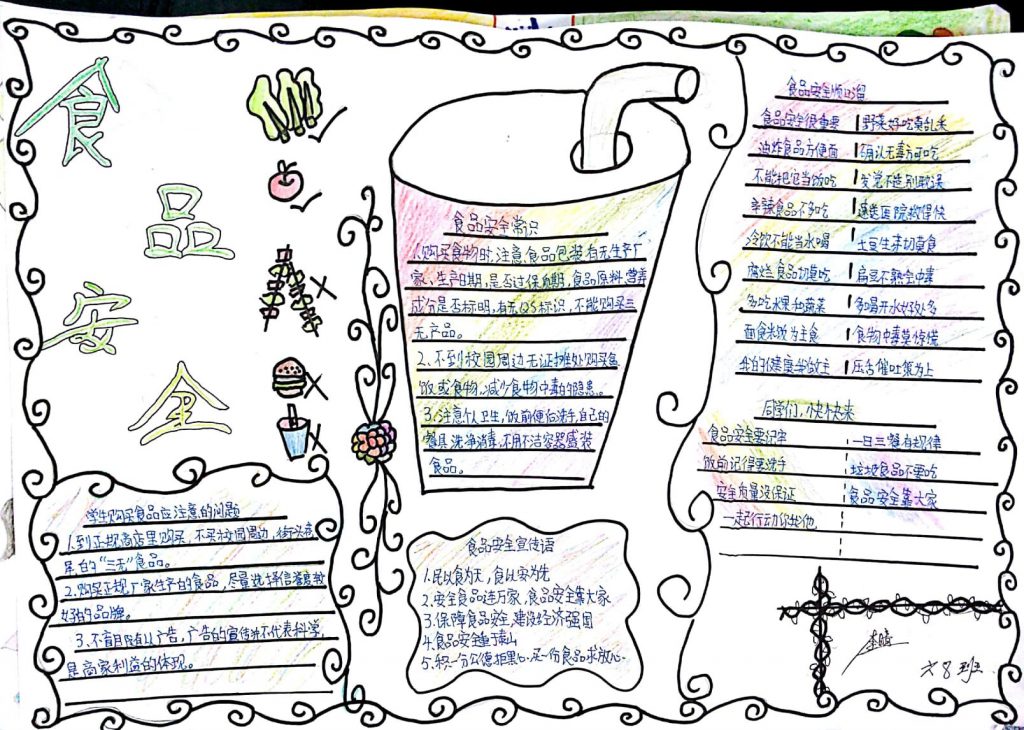 食
品
安
全
学生购买食品应注意的问题
1.到正规商店里购买,不买校园周边、街头巷
尾的“三无”食品。
2.购买正规厂家生产的食品,尽量选择信誉度较
好的品牌。
3、不盲目随从广告,广告的宣传并不代表科学,
是商家利益的体现。
食品安全常识
1.购买食物时,注意食品包装有无生产厂
家、生产日期,是否过保质期,食品原料、营养
成分是否标明,有无QS标识,不能购买三
无产品。
2、不到校园周边无证摊处购买盒
饭或食物,减少食物中毒的隐患。
3、注意个人卫生,饭前便后洗手,自己的
餐具洗净消毒,不用不洁容器盛装
食品。
食品安全宣传语
1.民以食为天,食以安为先
2.安全食品连万家,食品安全靠大家
3.保障食品安全,建设经济强国
4.食品安全重于泰山
5、积一分公德拒黑心,还一份食品求放心.
食品安全顺口溜
食品安全很重要 野菜好吃莫乱采
油炸食品方便面 确认无毒方可吃
不能把它当饭吃 发觉不适别耽误
辛辣食品不多吃 速送医院救得快
冷饮不能当水喝 土豆生芽切莫食
腐烂食品切莫吃 扁豆不熟会中毒
多吃水果和蔬菜 多喝开水好处多
面食米饭为主食 食物中毒莫惊慌
我的健康我做主 压舌催吐策为上
同学们,快快来
食品安全要记牢 一日三餐有规律
饭前记得要洗手 垃圾食品不要吃
安全质量没保证 食品安全靠大家
一起行动你我他
六8班